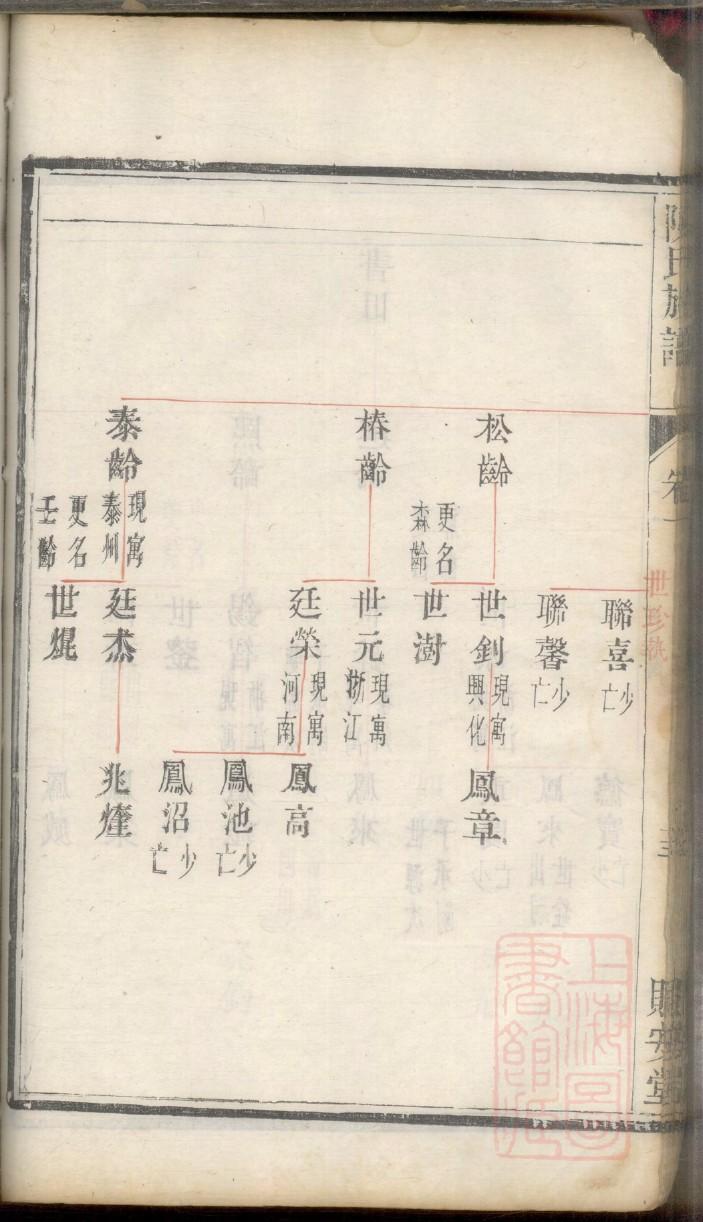 陳氏族譜
卷一
世珍執
聯喜
少亡
聯馨
少亡
松齡
更名
森齡
世釗
現寓
興化
鳳章
世澍
椿齡
世元
現寓
浙江
廷榮
現寓
河南
鳳高
鳳池
少亡
鳳沼
少亡
泰齡
現寓
泰州
更名
壬齡
廷杰
兆煃
世焜
上海圖
書館藏